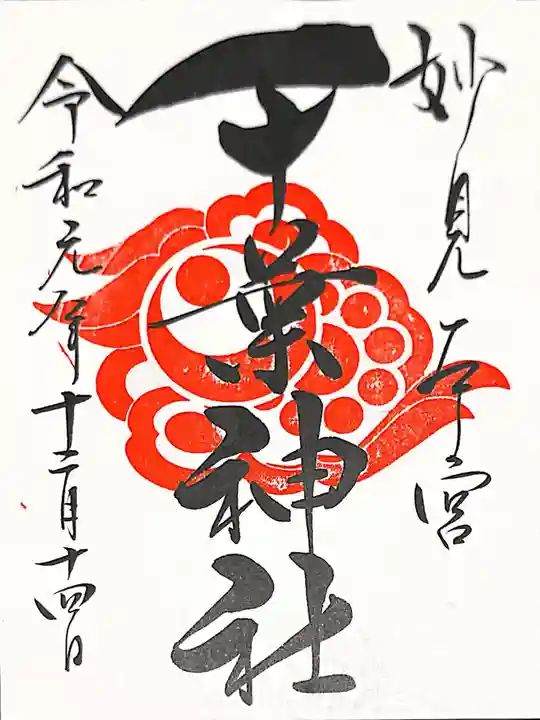 妙見本宮
千葉神社
令和元年十二月十四日